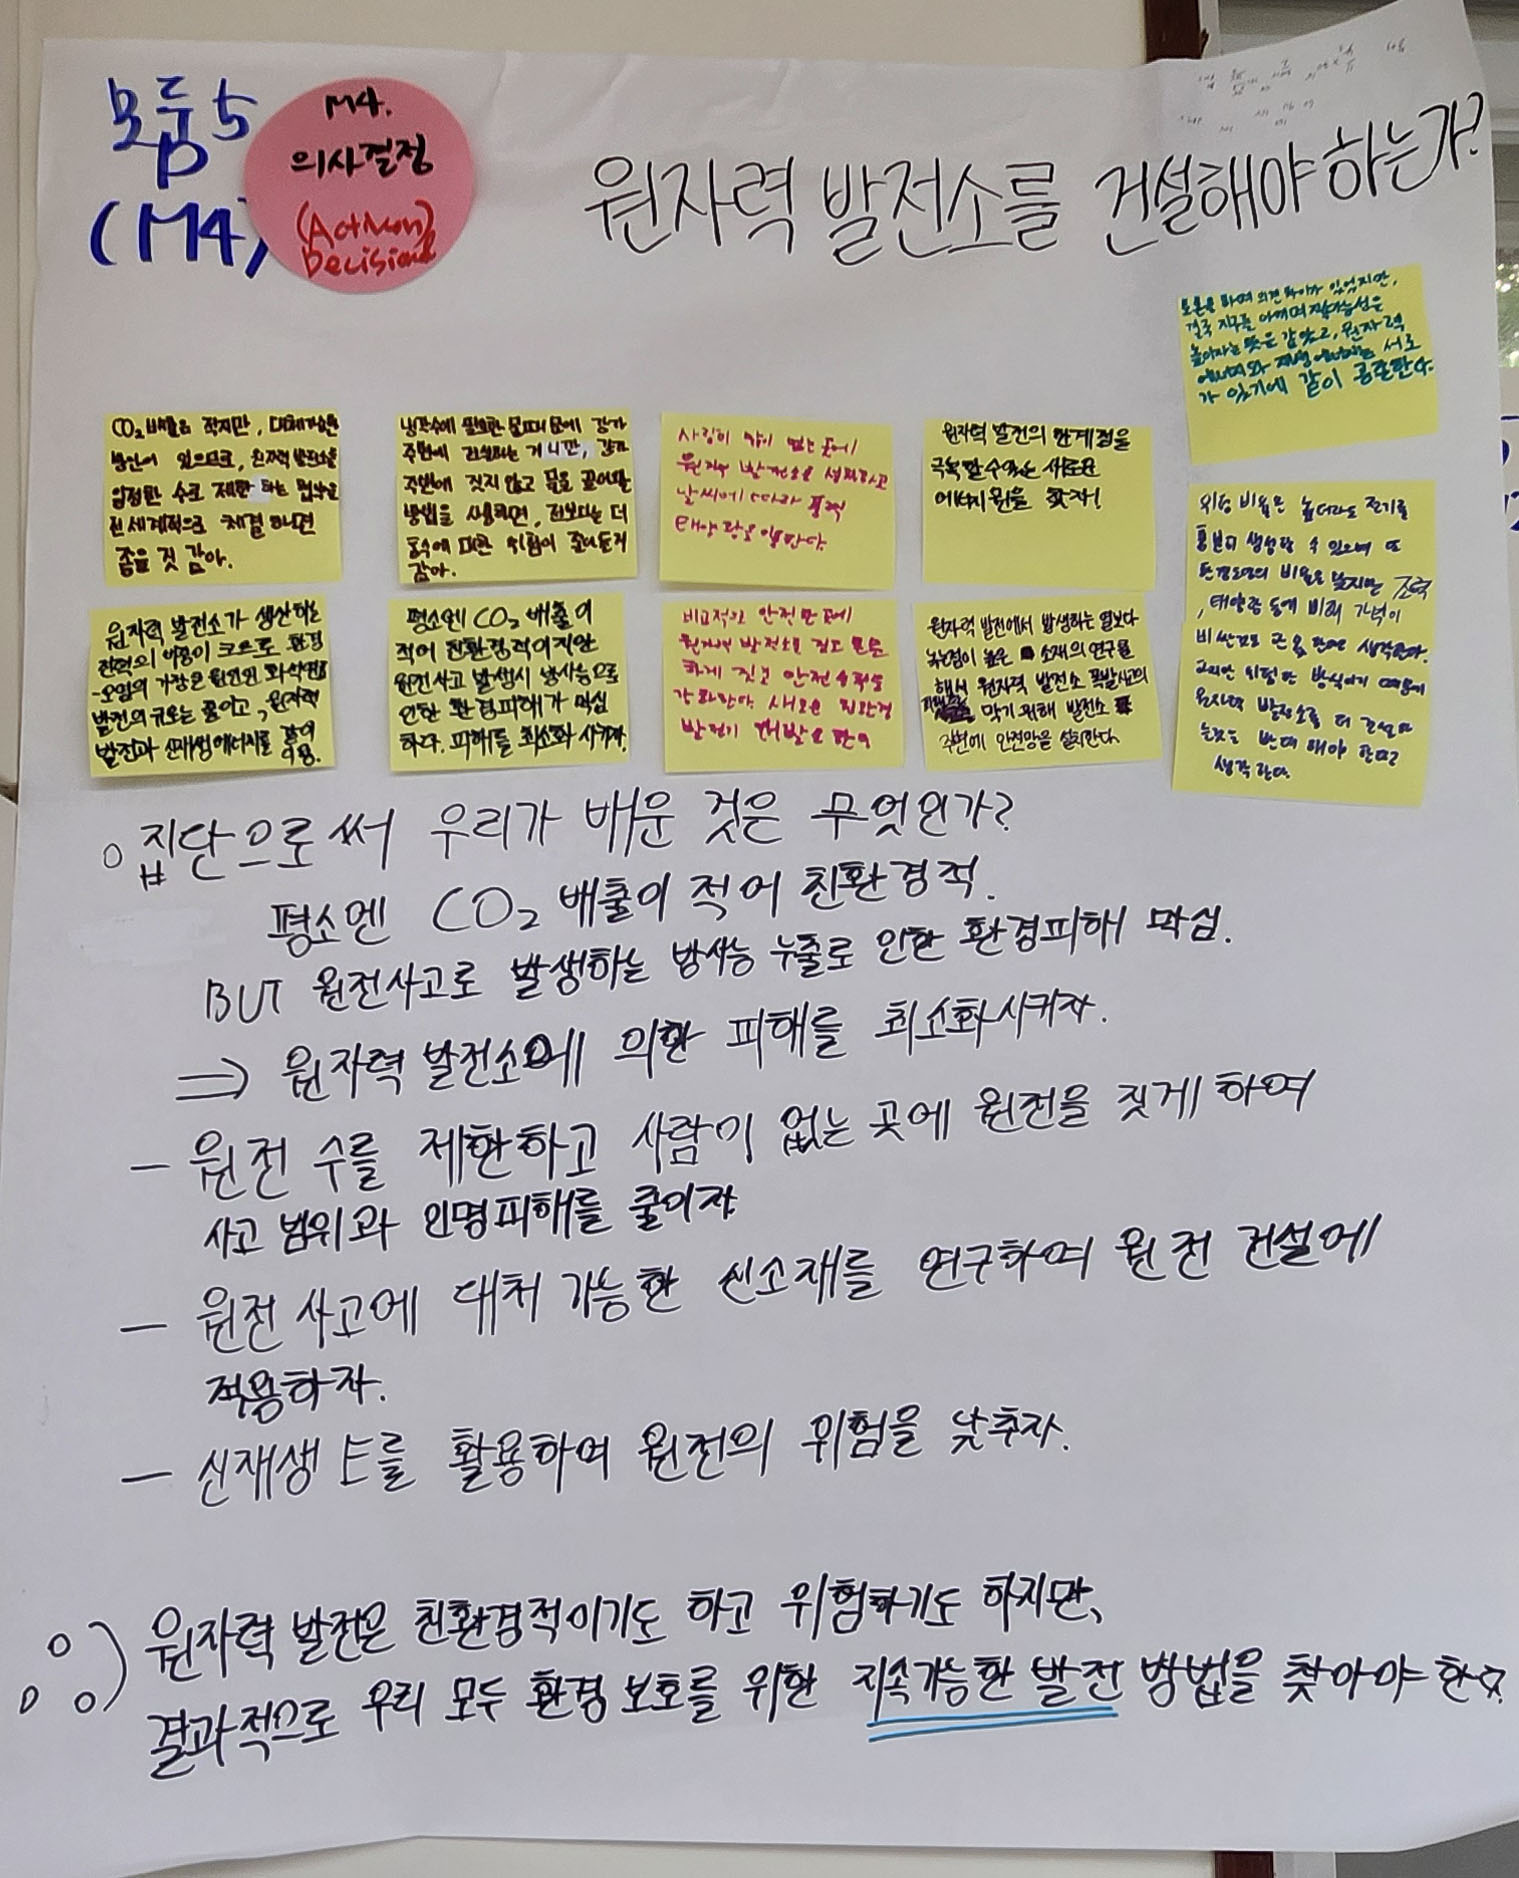 모둠5
(M4)
M4.
의사결정
(Action)
Decision
원자력 발전소를 건설해야 하는가?
토론을 하며 의견 차이가 있었지만,
결국 지구를 아끼며 지속가능성은
높이자는 뜻은 같았고, 원자력
에너지와 재생에너지는 서로
가 있기에 같이 공존한다.
CO₂ 배출은 적지만, 대체가능한
방안이 있으므로, 원자력 발전소를
일정한 수로 제한하는 협약을
전세계적으로 체결하면
좋을 것 같아.
냉각수에 필요한 물 때문에 강가
주변에 건설되는 거니깐, 강가
주변에 짓지 않고 물을 끌어쓸
방법을 사용하면, 전보다는 더
홍수에 대한 위험이 줄어들거
같아.
사람이 많이 없는 곳에
원자력 발전소를 설치하고
날씨에 따라 풍력
태양광을 쓴다.
원자력 발전의 한계점을
극복할 수 있는 새로운
에너지원을 찾자!
위험 비용은 높더라도 전기를
충분히 생성할 수 있으며 또
환경오염의 비율은 낮지만 풍력
, 태양광 등에 비해 가격이
비싼것도 큰 문제라고 생각한다.
하지만 위험한 방식이기 때문에
원자력 발전소를 더 건설하
는것은 반대해야 한다고
생각한다.
원자력 발전소가 생산하는
전력의 비중이 크므로 환경
오염의 가장큰 원인인 화석연료
발전의 규모는 줄이고, 원자력
발전과 신재생에너지를 같이
이용.
평소엔 CO₂ 배출이
적어 친환경적이지만
원전사고 발생시 방사능으로
인한 환경피해가 막심
하다. 피해를 최소화 시키자.
비교적인 안전한 곳에
원자력 발전소를 짓고 튼튼
하게 짓고 안전수칙을
강화한다. 새로운 친환경
발전기 개발도 한다
원자력 발전에서 발생하는 열보다
녹는점이 높은 소재의 연구를
해서 원자력 발전소 폭발사고의
피해를 막기 위해 발전소
주변에 안전망을 설치한다.
○ 집단으로써 우리가 배운 것은 무엇인가?
평소엔 CO₂ 배출이 적어 친환경적.
BUT 원전사고로 발생하는 방사능 누출로 인한 환경피해 막심.
⇒ 원자력 발전소에 의한 피해를 최소화시키자.
- 원전 수를 제한하고 사람이 없는 곳에 원전을 짓게 하여
사고 범위와 인명피해를 줄이자
- 원전 사고에 대처 가능한 신소재를 연구하여 원전 건설에
적용하자.
- 신재생 E를 활용하여 원전의 위험을 낮추자.
원자력 발전은 친환경적이기도 하고 위험하기도 하지만,
결과적으로 우리 모두 환경 보호를 위한 지속가능한 발전 방법을 찾아야 한다.